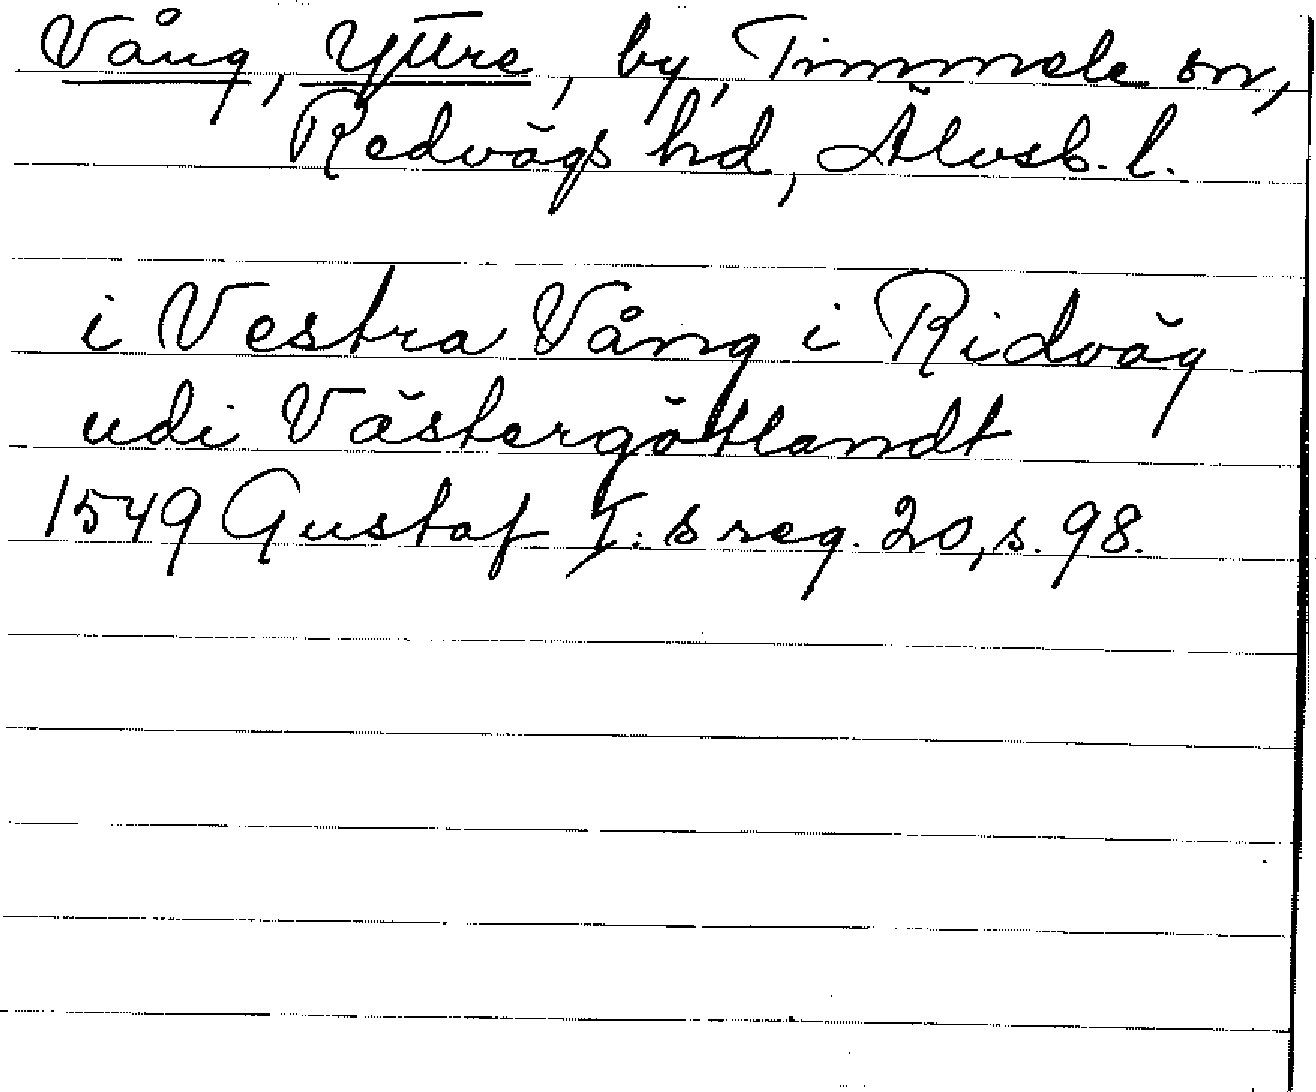 Vång, Yttre, by, Timmele sn,
Redvägs hd, Älvsb. l.
i Vestra Vång i Ridväg
udi Västergötlandt
1549 Gustaf I:s reg. 20, s. 98.